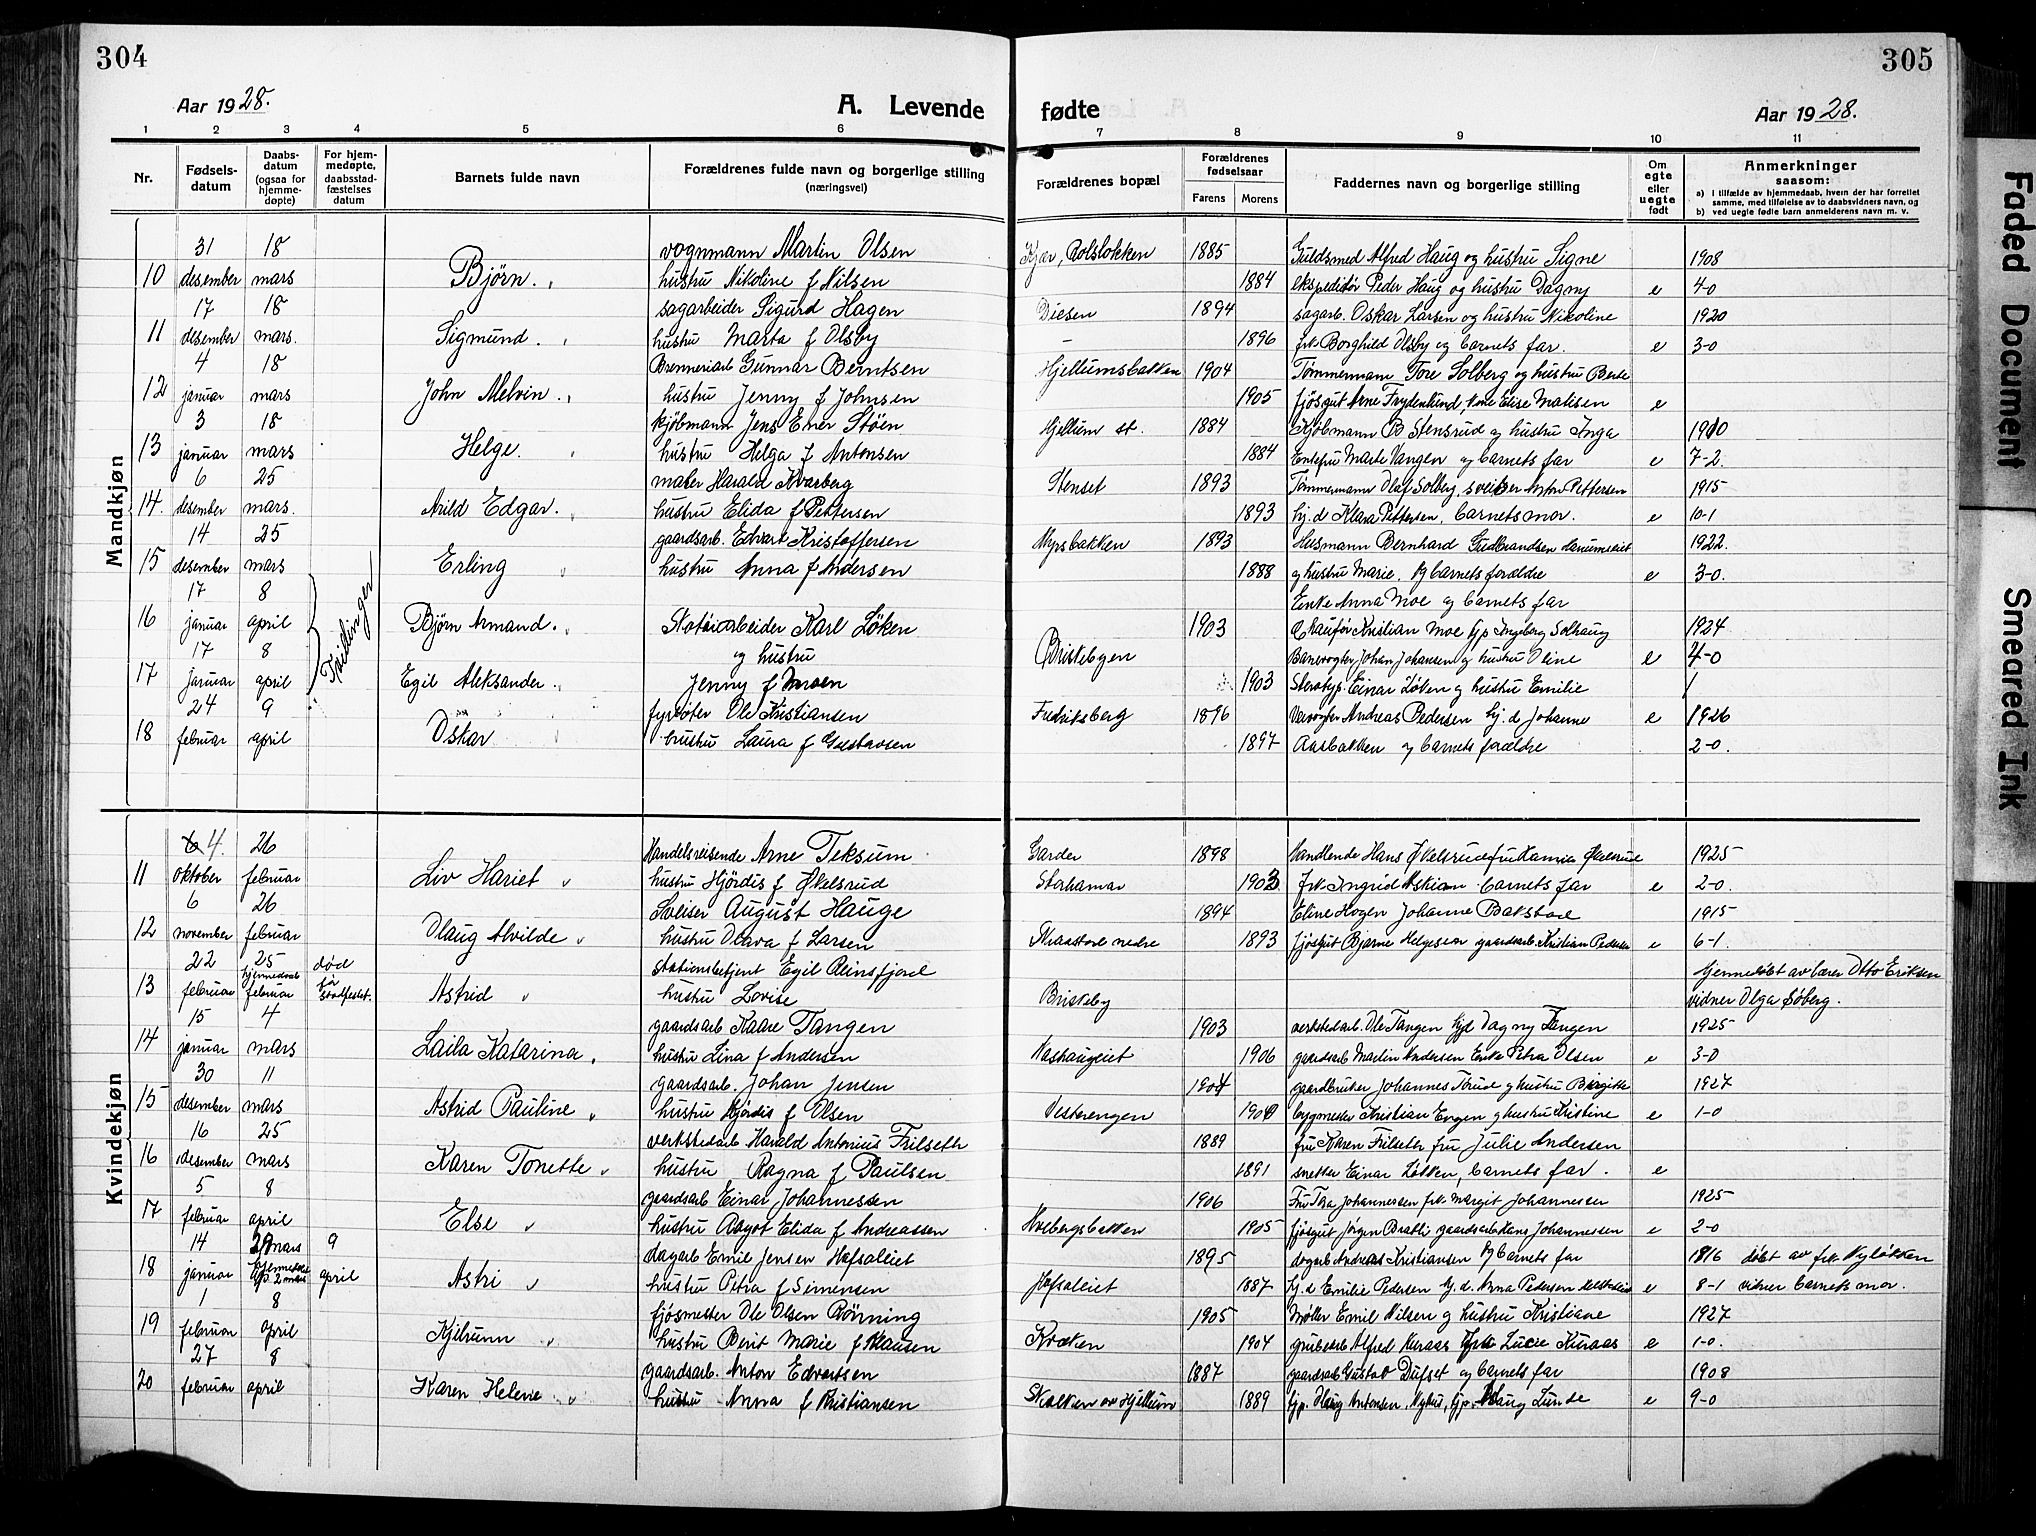 304
305
Aar 1928.
A. Levende
fødte
Aar 1928.
1 2 3 4 5 6 7 8 9 10 11
Nr.
Fødsels-
datum
Daabs-
datum
(ogsaa for
hjemme-
døpte)
For hjem-
medøpte,
daabsstad-
fæstelses
datum
Barnets fulde navn
Forældrenes fulde navn og borgerlige stilling
(næringsvei)
Forældrenes bopæl
Forældrenes
fødselsaar
Farens Morens
Faddernes navn og borgerlige stilling
Om
egte
eller
uegte
født
Anmerkninger
saasom:
a) i tilfælde av hjemmedaab, hvem der har forrettet
samme, med tilføielse av to daabsvidners navn, og
b) ved uegte fødte barn anmelderens navn m. v.
Mandkjøn
31 18 vognmann Martin Olsen Kjær, Rolsløkken 1885 Guldsmed Alfred Haug og hustru Signe 1908
10 desember mars Bjørn. hustru Nikoline f Nilsen 1884 ekspeditør Peder Haug og hustru Dagny e 4-0
17 18 sagarbeider Sigurd Hagen Diesen 1894 sagarb. Oskar Larsen og hustru Nikoline 1920
11 desember mars. Sigmund. hustru Marta f Olsby 1896 frk. Borghild Olsby og barnets far. e 3-0
4 18 Brenneriarb Gunnar Berntsen Hjellumsbakken 1904 Tømmermann Tore Solberg og hustru Berte
12 januar mars John Melvin. hustru Jenny f Johnsen 1905 fjøsgut Arne Frydenlund, Elise Matisen e
3 18 kjøbmann Jens Ener Støen Hjellum st. 1884 Kjøbmann B Stensrud og hustru Inga 1910
13 januar mars Helge. hustru Helga f Antonsen 1884 Enkefru Marte Vangen og barnets far e 7-2.
6 25 maler Harald Kvarberg Stenset 1893 Tømmermann Olaf Solberg, sveitser Anton Pettersen 1915
14. desember mars. Arild Edgar. hustru Elida f Pettersen 1893 hj. d Klara Pettersen, barnets mor. e 10-1
14 25 gaardsarb. Edvart Kristoffersen Myrsbakken 1893 Husmann Bernhard Gudbrandsen 1922.
15 desember mars Erling hustru Anna f Andersen 1888 og hustru Marie. Og barnets forældre e 3-0.
17 8 Enke Anna Moe og barnets far
16 januar april Tvillinger Bjørn Armand. Karl Løken 1903 Chaufør Kristian Moe hjp Ingeborg Solhaug 1924
17 8 og hustru Briskebyen Banevogter Johan Johansen og hustru Oline e 4-0
17 januar april Egil Aleksander. Jenny f Moen 1903 Einar Løken og hustru Emilie
24 9 fyrbøter Ole Kristiansen Fredriksberg 1896 Andreas Pedersen hj. d Johanne e 1926
18 februar april Oskar hustru Laura f Gustavsen 1897 Aasbakken og barnets forældre 2-0
Kvindekjøn
4. 26 Handelsreisende Arne Teksum Garder 1898 Handlende Hans Økelsrud fru Kamin Økelsrud 1925
11 oktober februar Liv Hariet hustru Hjördis f Økelsrud Storhamar 1903 frk. Ingrid Askian barnets far e 2-0.
6 26 Sveiser August Hauge 1894 Eline Hogen Johanne Bakstad 1915
12 november februar Olaug Alvilde hustru Olava f Larsen Skraastad nedre 1893 fjøsgut Bjarne Helgesen gaardsarb. Kristian Pedersen e 6-1
22 25 død stationsbetjent Egil Reinsfjord hjemmedøbt av lærer Otto Eriksen
13 februar hjemmedøbt februar før stadfestet. Astrid hustru Lovise Briskeby vidner Olga Søberg.
15 4 gaardsarb Kaare Tangen 1903 verkstedarb. Ole Tangen hjd Dagny Tangen 1925
14 januar mars Laila Katarina. hustru Lina f Andersen Vashaugeiet 1906 gaardsarb Martin Andersen Enke Petra Olsen e 3-0
30 11 gaardsarb. Johan Jensen 1904 gaardbruker Johannes Torud og hustru Birgitte 1927
15 desember mars Astrid Pauline hustru Hjördis f Olsen Vesterengen bygmester Kristian Engen og hustru Kristine e 1-0
16 25 verkstedarb Harald Antonius Frilseth 1889 fru Karen Frilseth fru Julie Andersen
16 desember mars Karen Tonette hustru Ragna f Paulsen 1891 snekker Einar Løkken, barnets far. e
5 8 gaardsarb Einar Johannessen 1906 Fru Tora Johannessen frk. Margit Johannessen 1925
17 februar april Else hustru Aagot Elida f Andreassen Hvebergsbakken 1905 fjøsgut Jørgen Bratli gaardsarb Hans Johannessen e 2-0
14 mars 9 dagarb Emil Jensen Hofsaleiet 1895 dagarb Andreas Kristiansen Og barnets far 1916 døbt av frk. Nyløkken
18 januar april Astri hustru Petra f Simensen Hofsaleiet 1887 hj. d Emilie Pedersen hj. d. Anna Pedersen e 8-1 vidner barnets mor.
1 8 fjøsmester Ole Olsen Rönning 1905 Møller Emil Nilsen og hustru Kristiane 1927
19 februar april Kjelrunn hustru Berit Marie f Klausen Kræken 1904 Alfred Kuraas frk Lucie Kuraas e 1-0.
27 8 gaardsarb. Anton Edvartsen 1887 gaardsarb Gustav Dufset og barnets far 1908
20 februar april Karen Helene hustru Anna f Kristiansen Skolken av Hjellum 1889 hjp. Olaug Antonsen, Nyhus, hjp. Aslaug Lunde e 9-0
Faded Document
Smeared Ink